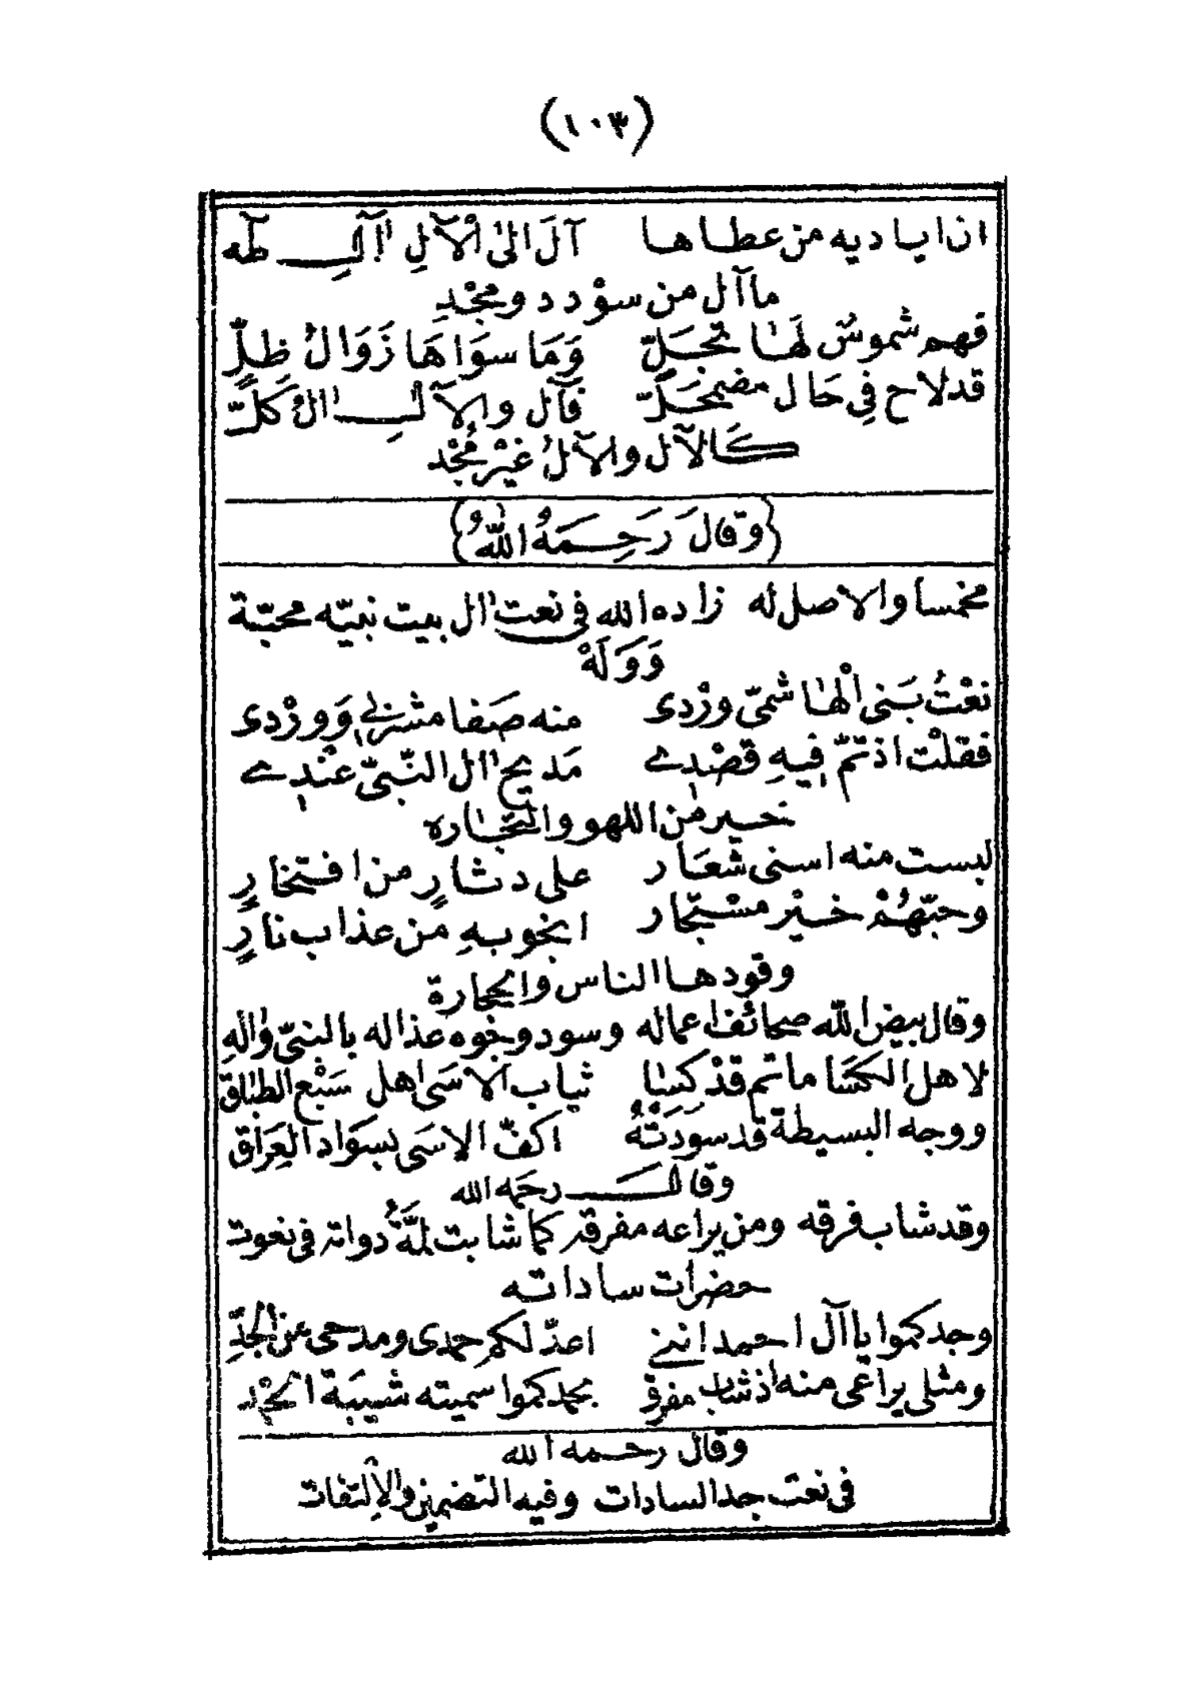 (١٠٣)
ان اياديه من عطاها آلَ الىٰ الْآلِ اٰآلِ طٰه
ما آل من سوْدد ومجْدِ
فهم شموسٌ لَهَا تجَلّ وَمَا سِوَاهَا زَوَالُ ظِلٍّ
قد لاح فِي حَال مضمحَلّ فآل والآلِ اٰلُ كَلّ
كَالآل والآلُ غيْر مُجْد
{وقالَ رَحِمَهُ اللهُ}
مخمسا والاصل له زاده الله في نعت اٰل بيت نبيّه محبّة
وَوَلَهْ
نعْتُ بَنى الْهَاشمىّ ورْدى منه صَفا مشربي وَورْدى
فقلْت اذ تمّ فيهِ قصْدِي مَديح اٰل النّبىّ عنْدِي
خير من اللهو والتّجاره
لبست منه اسنى شعَار على دثارٍ من افتخارٍ
وحبّهُمْ خيْر مسْتجار انجو بهِ من عذاب نارٍ
وقودها الناس والحجارة
وقال بيض الله صحائف اعماله وسود وجوه عذاله بالنبىّ واٰلهِ
لاهل الكسَا ماتم قدْ كسَا ثياب الاسَى اهل سَبْع الطباق
ووجه البسيطة قد سودَتْهُ اكفّ الاسَى بسوَاد العِرَاق
وقال رحمَه الله
وقد شاب فرقه ومن يراعه مفرقه كما شابت لمَّةُ دواته في نعوت
حضرات ساداته
وجدكموا يا آل احمد اننى اعدّ لكم حمدى ومدحى عن الجدِّ
ومثلى يراعى منه اذ شاب مفرقى بحمدكموا سميته شيبَة الحمْد
وقال رحمه الله
في نعت جد السادات وفيه التضمين والالتفات